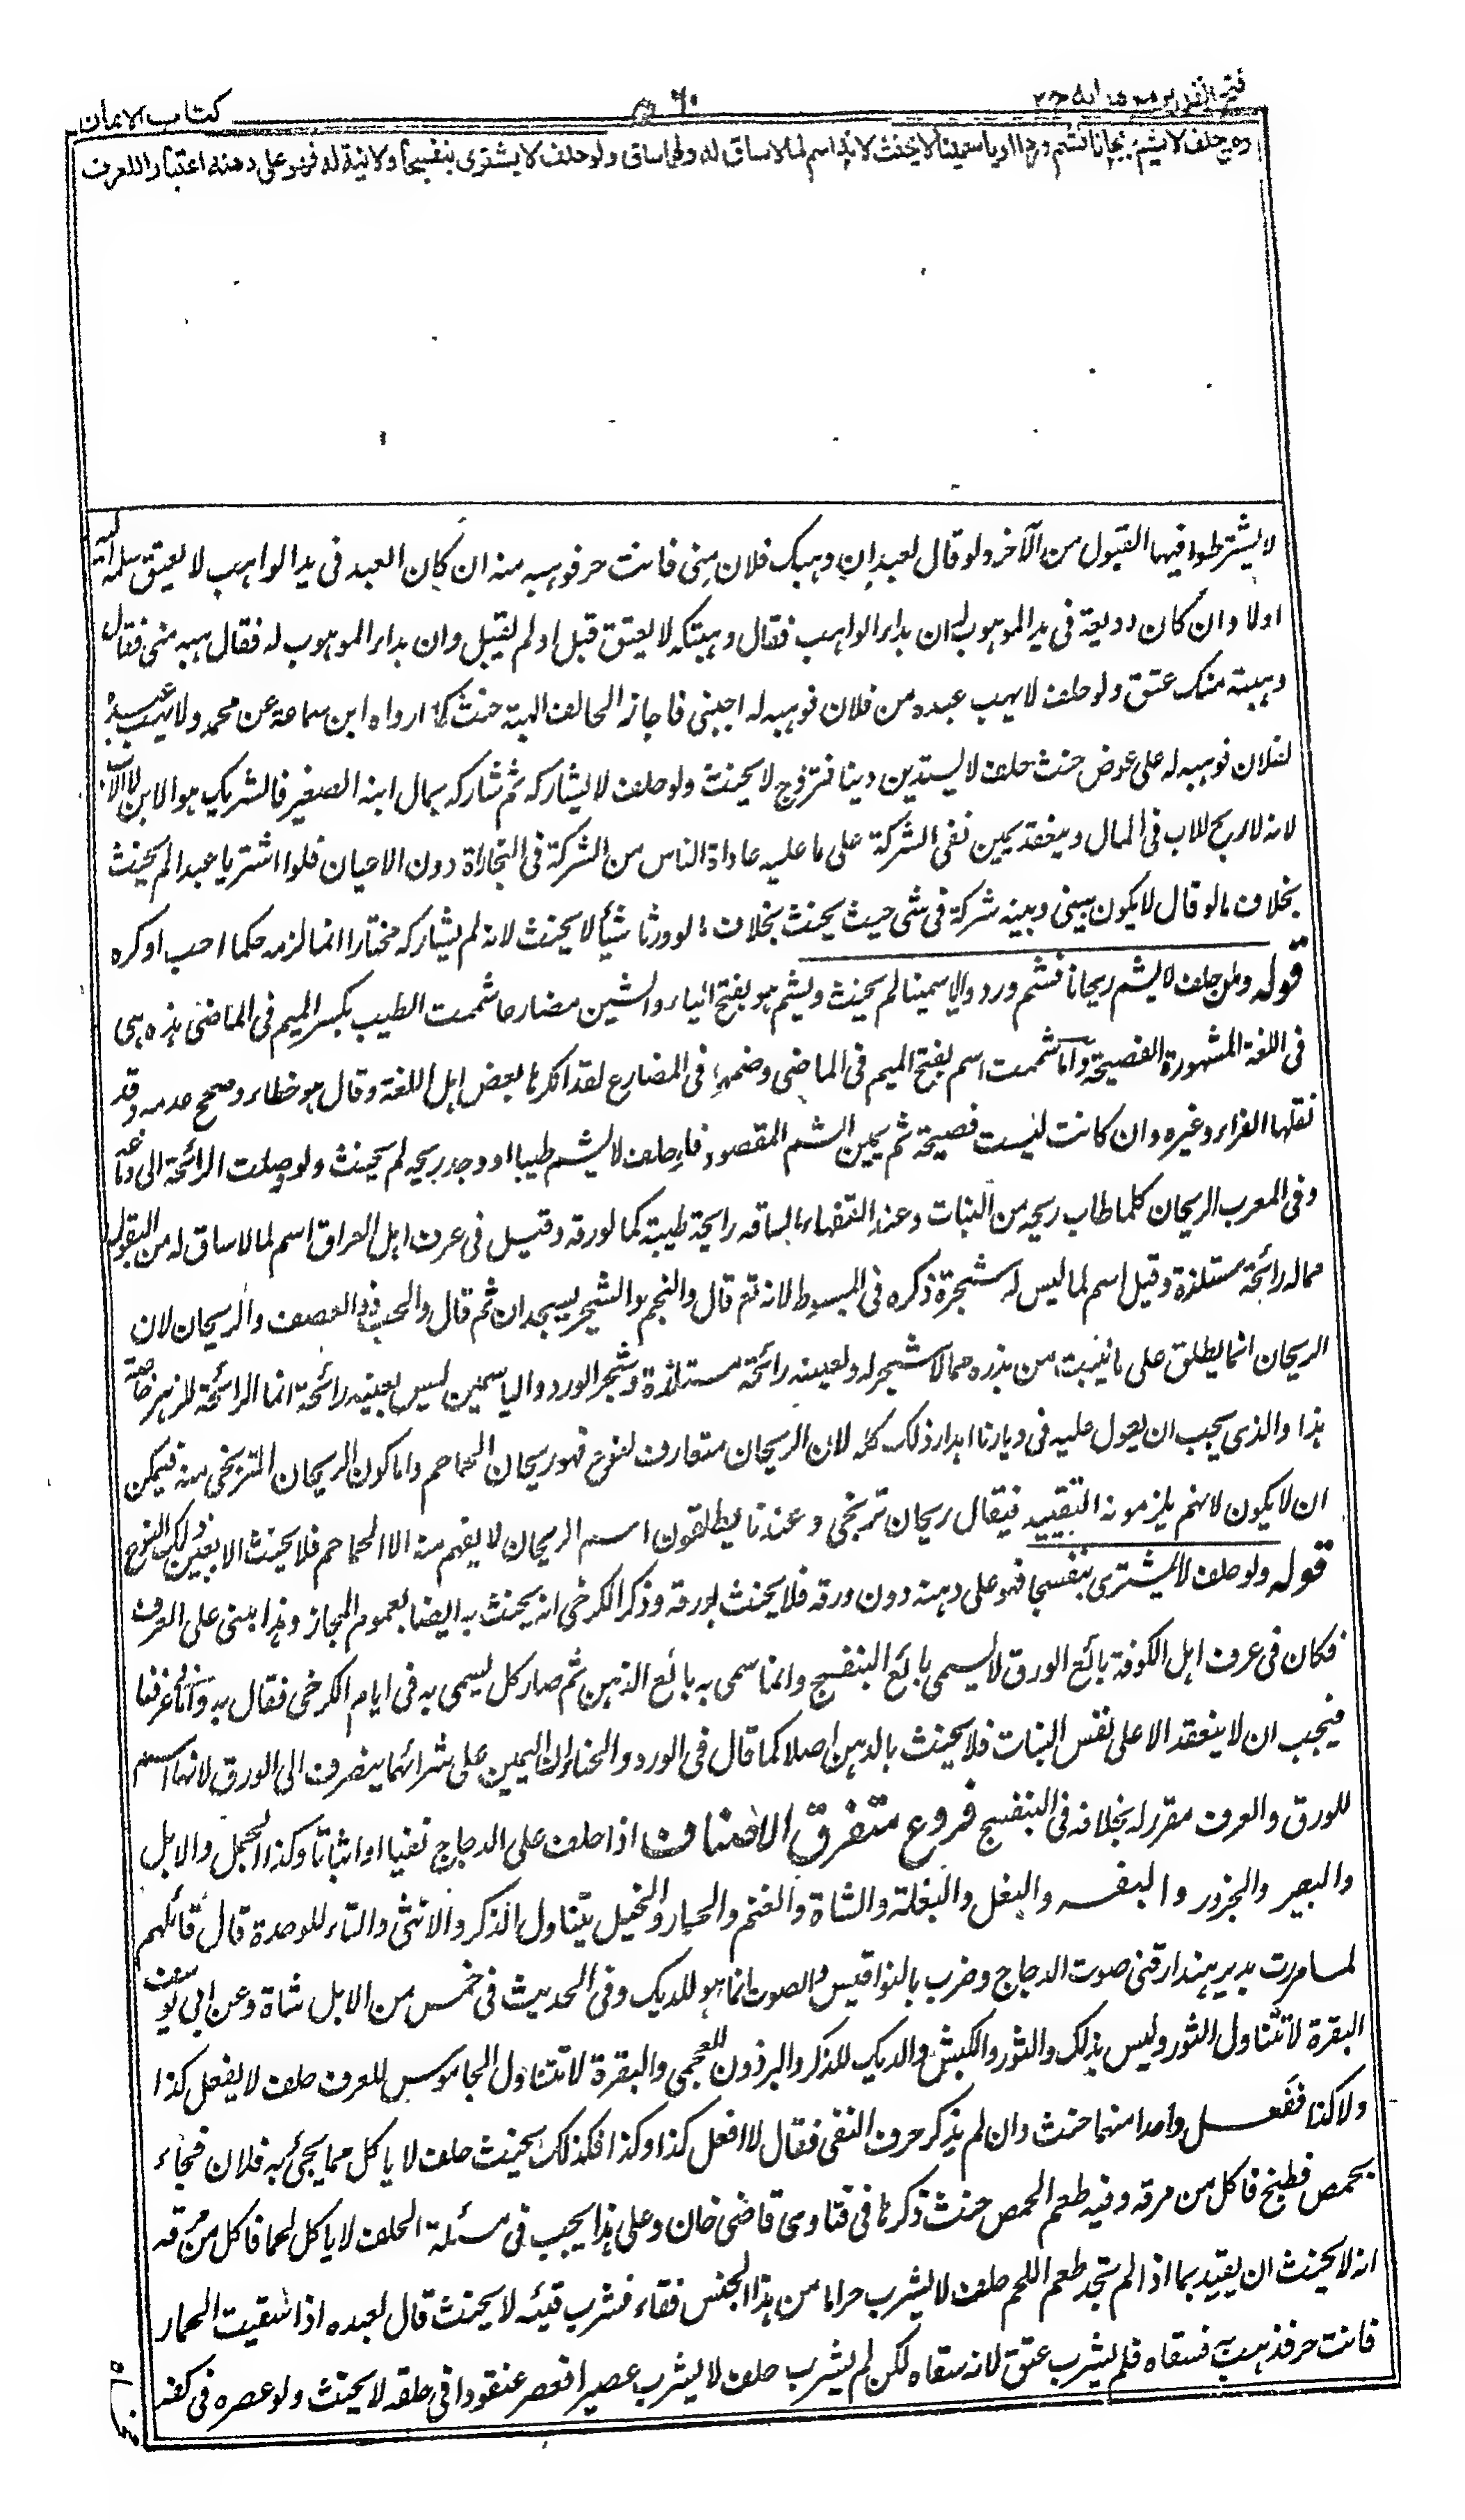 فتح القدير مع هدايه ج ٢
٦٠
كتاب الايمان
ومن حلف لا يشم ريحانا فشم وردا او ياسمينا لا يحنث لانه اسم لما لا ساق له ولهما ساق ولو حلف لا يشترى بنفسجا ولا نية له فهو على دهنه اعتبارا للعرف
لا يشترطوا فيها القبول من الآخر ولو قال لعبد ان وهبك فلان منى فانت حر فوهبه منه ان كان العبد فى يد الواهب لا يعتق سلمه له
اولا وان كان وديعة فى يد الموهوب له ان بدأ الواهب فقال وهبتكه لا يعتق قبل او لم يقبل وان بدأ الموهوب له فقال هبه منى فقال
وهبته منك عتق ولو حلف لا يهب عبده من فلان فوهبه له اجنبى فاجاز الحالف الهبة حنث كذا رواه ابن سماعة عن محمد ولا يهب عبده
لفلان فوهبه له على عوض حنث حلف لا يستدين دينا فتزوج لا يحنث ولو حلف لا يشاركه ثم شاركه بمال ابنه الصغير فالشريك هو الابن لا الاب
لانه لا ربح للاب فى المال وينعقد يمين نفى الشركة على ما عليه عادة الناس من الشركة فى التجاراة دون الاعيان فلو اشتريا عبدا لم يحنث
بخلاف ما لو قال لا يكون بينى وبينه شركة فى شى حيث يحنث بخلاف ما لو ورثا شيأ لا يحنث لانه لم يشاركه مختارا انما لزمه حكما احب او كره
قوله ولمن حلف لا يشم ريحانا فشم وردا والا سمينا لم يحنث ويشم هو بفتح الياء والشين مضارع شممت الطيب بكسر الميم فى الماضى هذه هى
فى اللغة المشهورة الفصيحة واما شممت اسم بفتح الميم فى الماضى وضمها فى المضارع لقد انكرها بعض اهل اللغة وقال هو خطاء وصحح عدمه وقد
نقلها الفراء وغيره وان كانت ليست فصيحة ثم يمين الشم المقصود فلو حلف لا يشم طيبا او وجد ريحه لم يحنث ولو وصلت الرائحة الى دماغه
وفى المغرب الريحان كلما طاب ريحه من النبات وعند الفقهاء ما لساقه رايحة طيبة كما لورقه وقيل فى عرف اهل العراق اسم لما لا ساق له من البقول
مما له رائحة مستلذة وقيل اسم لما ليس له شجرة ذكره فى المبسوط لانه تع قال والنجم والشجر يسجدان ثم قال والحب ذو العصف والريحان لان
الريحان انما يطلق على ما ينبت من بذره مما لا شجر له ولعينه رائحة مستلذة وشجر الورد والياسمين ليس لعينه رائحة انما الرائحة للزهر خاصة
هذا والذى يجب ان يعول عليه فى ديارنا اهدار ذلك كله لان الريحان متعارف لنوع فهو ريحان الحماحم واما كون الريحان الترنجى منه فيمكن
ان لا يكون لانهم يلزمونه التقييد فيقال ريحان ترنجى وعندنا يطلقون اسم الريحان لا يفهم منه الا الحماحم فلا يحنث الا بعين ذلك النوع
قوله ولو حلف لا يشترى بنفسجا فهو على دهنه دون ورقه فلا يحنث بورقه وذكر الكرخى انه يحنث به ايضا لعموم المجاز وهذا مبنى على العرف
فكان فى عرف اهل الكوفة بائع الورق لا يسمى بائع البنفسج وانما سمى به بائع الدهن ثم صار كل يسمى به فى ايام الكرخى فقال به واما فى عرفنا
فيجب ان لا ينعقد الا على نفس النبات فلا يحنث بالدهن اصلا كما قال فى الورد والحناء ان اليمين على شرائهما ينصرف الى الورق لانهما اسم
للورق والعرف مقرر له بخلافه فى البنفسج فروع متفرق الاصناف اذا حلف على الدجاج نفيا او اثباتا وكذا الجمل والابل
والبعير والجزور والبقر والبغل والبغلة والشاة والغنم والحمار والخيل يتناول الذكر والانثى والتاء للوحدة قال قائلهم
لما مررت بدير هند ارقنى صوت الدجاج وضرب بالنواقيس والصوت انما هو للديك وفى الحديث فى خمس من الابل شاة وعن ابى يوسف
البقرة لا تتناول الثور وليس بذلك والثور والكبش والديك للذكر والبرذون للعجمى والبقرة لا تتناول الجاموس للعرف حلف لا يفعل كذا
ولا كذا ففعل واحدا منهما حنث وان لم يذكر حرف النفى فقال لا افعل كذا وكذا فكذلك يحنث حلف لا ياكل مما يجئ به فلان فجاء
بحمص فطبخ فاكل من مرقه وفيه طعم الحمص حنث ذكرها فى فتاوى قاضى خان وعلى هذا يجب فى مسئلة الحلف لا ياكل لحما فاكل من مرقه
انه لا يحنث ان يقيد بما اذا لم يجد طعم اللحم حلف لا يشرب حراما من هذا الجنس فقاء فشرب قيئه لا يحنث قال لعبده اذا سقيت الحمار
فانت حر فذهب به فسقاه فلم يشرب عتق لانه سقاه لكن لم يشرب حلف لا يشرب عصيرا فعصر عنقودا فى حلقه لا يحنث ولو عصره فى كفه